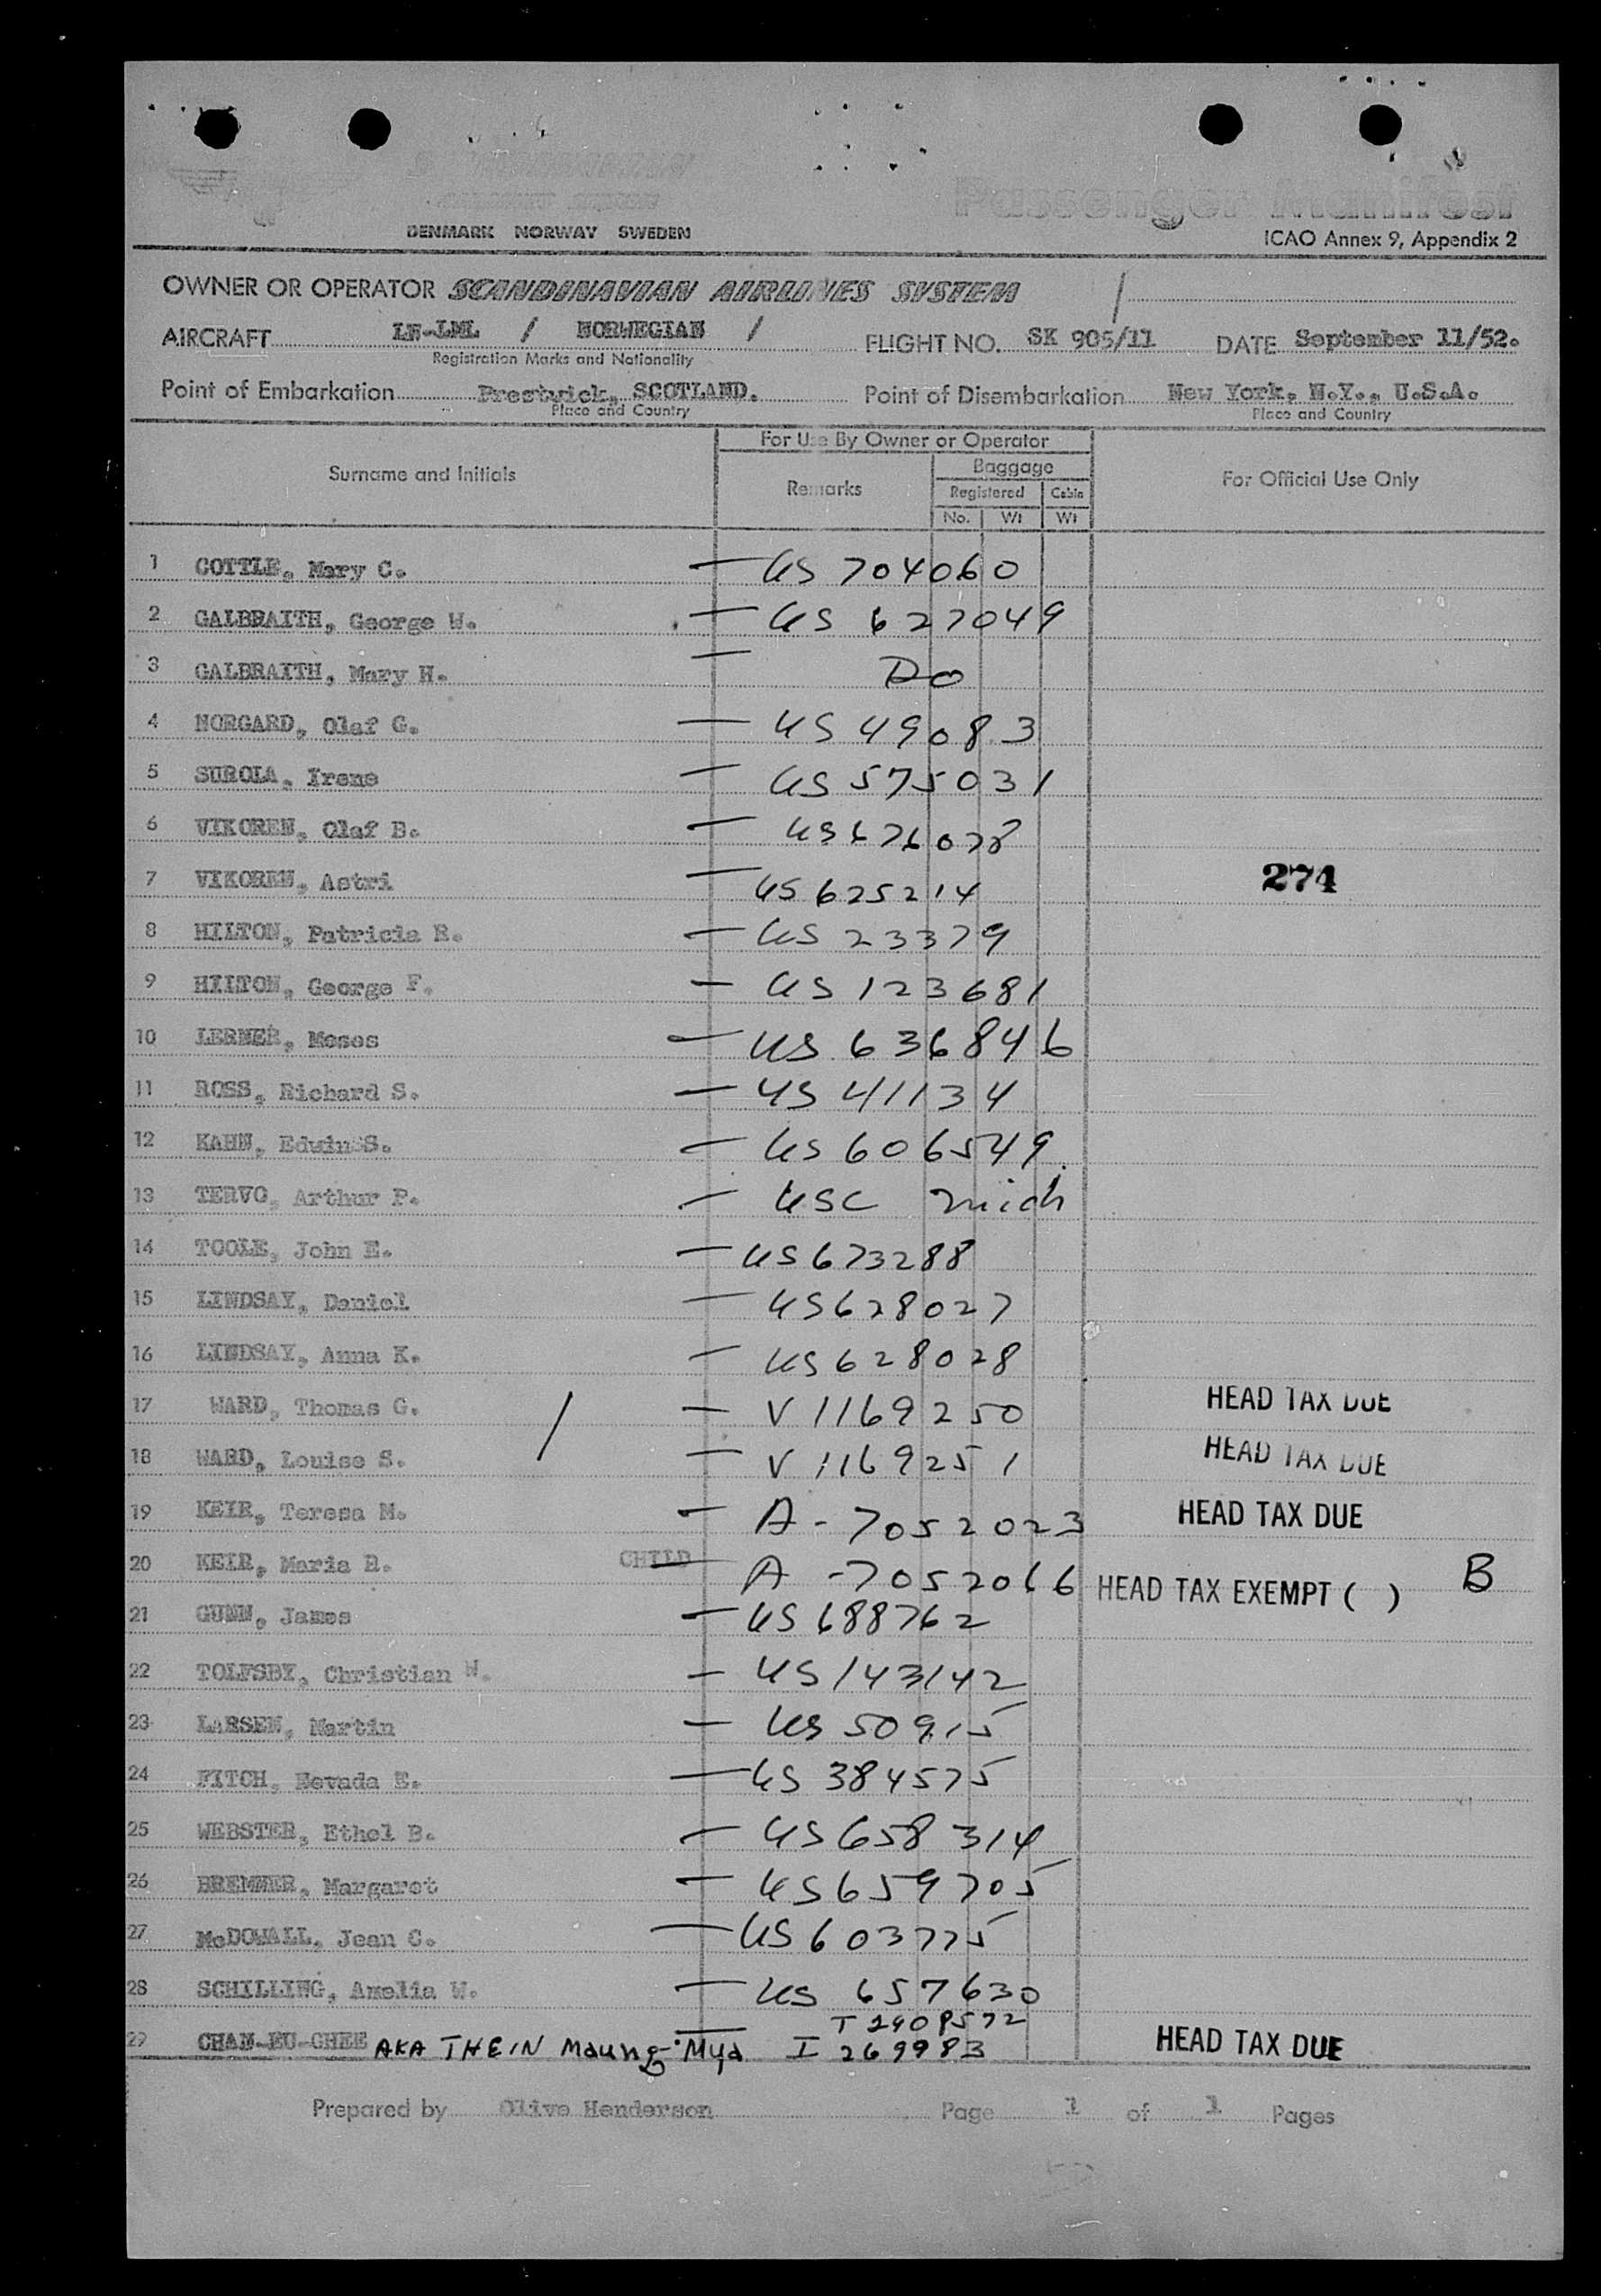 Passenger Manifest
DENMARK NORWAY SWEDEN
ICAO Annex 9, Appendix 2
OWNER OR OPERATOR SCANDINAVIAN AIRLINES SYSTEM /
AIRCRAFT LN-LML / NORWEGIAN / FLIGHT NO. SK 905/11 DATE September 11/52.
Registration Marks and Nationality
Point of Embarkation Prestwick, SCOTLAND. Point of Disembarkation New York, N.Y., U.S.A.
Place and Country Place and Country
For Use By Owner or Operator
Surname and Initials Remarks Baggage For Official Use Only
Registered Cabin
No. Wt Wt
1 COTTLE, Mary C. — US 704060
2 GALBRAITH, George W. — US 627049
3 GALBRAITH, Mary H. — Do
4 NORGARD, Olaf G. — US 49083
5 SUROLA, Irene — US 575031
6 VIKOREN, Olaf B. — US 676078
7 VIKOREN, Astri — US 625214 274
8 HILTON, Patricia R. — US 23379
9 HILTON, George F. — US 123681
10 LERNER, Moses — US 636846
11 ROSS, Richard S. — US 41134
12 KAHN, Edwin S. — US 606549
13 TERVO, Arthur P. — USC Mich
14 TOOLE, John E. — US 673288
15 LINDSAY, Daniel — US 628027
16 LINDSAY, Anna K. — US 628028
17 WARD, Thomas G. / — V 1169250 HEAD TAX DUE
18 WARD, Louise S. — V 1169251 HEAD TAX DUE
19 KEIR, Teresa M. — A-7052023 HEAD TAX DUE
20 KEIR, Maria R. CHILD — A-7052066 HEAD TAX EXEMPT ( ) B
21 GUNN, James — US 688762
22 TOLFSBY, Christian W. — US 143142
23 LARSEN, Martin — US 50915
24 FITCH, Nevada E. — US 384575
25 WEBSTER, Ethel B. — US 658314
26 BREMNER, Margaret — US 659705
27 McDOWALL, Jean C. — US 603775
28 SCHILLING, Amelia W. — US 657630
T 2408572
29 CHAN-EU-CHEE AKA THEIN Maung Mya — I 269983 HEAD TAX DUE
Prepared by Olive Henderson Page 1 of 1 Pages